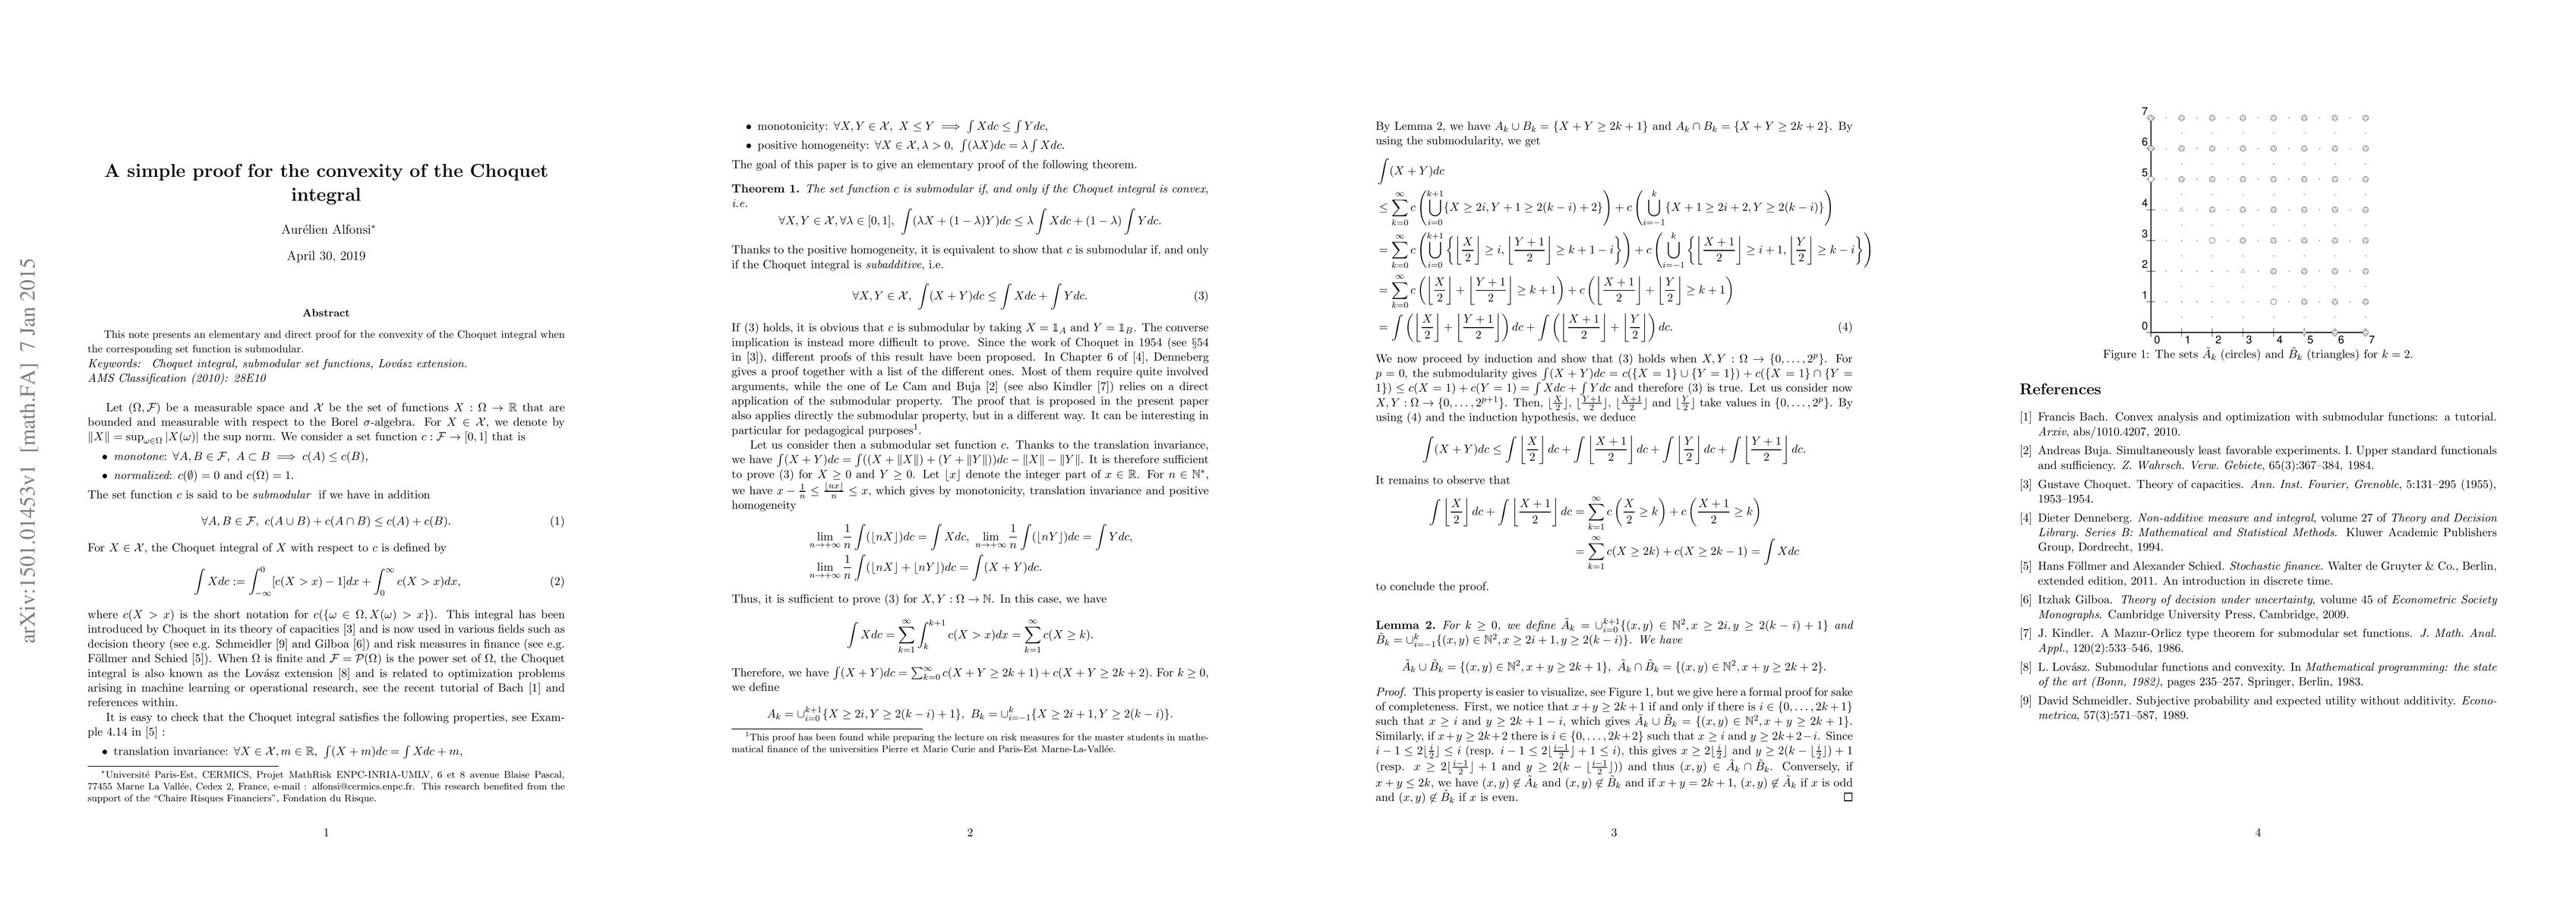 arXiv:1501.01453v1 [math.FA] 7 Jan 2015
A simple proof for the convexity of the Choquet
integral
Aurélien Alfonsi*
April 30, 2019
Abstract
This note presents an elementary and direct proof for the convexity of the Choquet integral when
the corresponding set function is submodular.
Keywords: Choquet integral, submodular set functions, Lovász extension.
AMS Classification (2010): 28E10
Let (Ω, F) be a measurable space and X be the set of functions X : Ω → ℝ that are
bounded and measurable with respect to the Borel σ-algebra. For X ∈ X, we denote by
‖X‖ = sup_{ω∈Ω} |X(ω)| the sup norm. We consider a set function c : F → [0, 1] that is
• monotone: ∀A, B ∈ F, A ⊂ B ⟹ c(A) ≤ c(B),
• normalized: c(∅) = 0 and c(Ω) = 1.
The set function c is said to be submodular if we have in addition
∀A, B ∈ F, c(A ∪ B) + c(A ∩ B) ≤ c(A) + c(B). (1)
For X ∈ X, the Choquet integral of X with respect to c is defined by
∫ Xdc := ∫_{−∞}^0 [c(X > x) − 1]dx + ∫_0^∞ c(X > x)dx, (2)
where c(X > x) is the short notation for c({ω ∈ Ω, X(ω) > x}). This integral has been
introduced by Choquet in its theory of capacities [3] and is now used in various fields such as
decision theory (see e.g. Schmeidler [9] and Gilboa [6]) and risk measures in finance (see e.g.
Föllmer and Schied [5]). When Ω is finite and F = P(Ω) is the power set of Ω, the Choquet
integral is also known as the Lovász extension [8] and is related to optimization problems
arising in machine learning or operational research, see the recent tutorial of Bach [1] and
references within.
It is easy to check that the Choquet integral satisfies the following properties, see Exam-
ple 4.14 in [5] :
• translation invariance: ∀X ∈ X, m ∈ ℝ, ∫(X + m)dc = ∫ Xdc + m,
*Université Paris-Est, CERMICS, Projet MathRisk ENPC-INRIA-UMLV, 6 et 8 avenue Blaise Pascal,
77455 Marne La Vallée, Cedex 2, France, e-mail : alfonsi@cermics.enpc.fr. This research benefited from the
support of the “Chaire Risques Financiers”, Fondation du Risque.
1
• monotonicity: ∀X, Y ∈ X, X ≤ Y ⟹ ∫ Xdc ≤ ∫ Y dc,
• positive homogeneity: ∀X ∈ X, λ > 0, ∫(λX)dc = λ ∫ Xdc.
The goal of this paper is to give an elementary proof of the following theorem.
Theorem 1. The set function c is submodular if, and only if the Choquet integral is convex,
i.e.
∀X, Y ∈ X, ∀λ ∈ [0, 1], ∫(λX + (1 − λ)Y)dc ≤ λ ∫ Xdc + (1 − λ) ∫ Y dc.
Thanks to the positive homogeneity, it is equivalent to show that c is submodular if, and only
if the Choquet integral is subadditive, i.e.
∀X, Y ∈ X, ∫(X + Y)dc ≤ ∫ Xdc + ∫ Y dc. (3)
If (3) holds, it is obvious that c is submodular by taking X = 𝟙_A and Y = 𝟙_B. The converse
implication is instead more difficult to prove. Since the work of Choquet in 1954 (see §54
in [3]), different proofs of this result have been proposed. In Chapter 6 of [4], Denneberg
gives a proof together with a list of the different ones. Most of them require quite involved
arguments, while the one of Le Cam and Buja [2] (see also Kindler [7]) relies on a direct
application of the submodular property. The proof that is proposed in the present paper
also applies directly the submodular property, but in a different way. It can be interesting in
particular for pedagogical purposes¹.
Let us consider then a submodular set function c. Thanks to the translation invariance,
we have ∫(X + Y)dc = ∫((X + ‖X‖) + (Y + ‖Y‖))dc − ‖X‖ − ‖Y‖. It is therefore sufficient
to prove (3) for X ≥ 0 and Y ≥ 0. Let ⌊x⌋ denote the integer part of x ∈ ℝ. For n ∈ ℕ*,
we have x − 1/n ≤ ⌊nx⌋/n ≤ x, which gives by monotonicity, translation invariance and positive
homogeneity
lim_{n→+∞} 1/n ∫(⌊nX⌋)dc = ∫ Xdc, lim_{n→+∞} 1/n ∫(⌊nY⌋)dc = ∫ Y dc,
lim_{n→+∞} 1/n ∫(⌊nX⌋ + ⌊nY⌋)dc = ∫(X + Y)dc.
Thus, it is sufficient to prove (3) for X, Y : Ω → ℕ. In this case, we have
∫ Xdc = ∑_{k=1}^∞ ∫_k^{k+1} c(X > x)dx = ∑_{k=1}^∞ c(X ≥ k).
Therefore, we have ∫(X + Y)dc = ∑_{k=0}^∞ c(X + Y ≥ 2k + 1) + c(X + Y ≥ 2k + 2). For k ≥ 0,
we define
A_k = ∪_{i=0}^{k+1}{X ≥ 2i, Y ≥ 2(k − i) + 1}, B_k = ∪_{i=−1}^k{X ≥ 2i + 1, Y ≥ 2(k − i)}.
¹This proof has been found while preparing the lecture on risk measures for the master students in mathe-
matical finance of the universities Pierre et Marie Curie and Paris-Est Marne-La-Vallée.
2
By Lemma 2, we have A_k ∪ B_k = {X + Y ≥ 2k + 1} and A_k ∩ B_k = {X + Y ≥ 2k + 2}. By
using the submodularity, we get
∫(X + Y)dc
≤ ∑_{k=0}^∞ c(⋃_{i=0}^{k+1}{X ≥ 2i, Y + 1 ≥ 2(k − i) + 2}) + c(⋃_{i=−1}^k{X + 1 ≥ 2i + 2, Y ≥ 2(k − i)})
= ∑_{k=0}^∞ c(⋃_{i=0}^{k+1}{⌊X/2⌋ ≥ i, ⌊(Y + 1)/2⌋ ≥ k + 1 − i}) + c(⋃_{i=−1}^k{⌊(X + 1)/2⌋ ≥ i + 1, ⌊Y/2⌋ ≥ k − i})
= ∑_{k=0}^∞ c(⌊X/2⌋ + ⌊(Y + 1)/2⌋ ≥ k + 1) + c(⌊(X + 1)/2⌋ + ⌊Y/2⌋ ≥ k + 1)
= ∫(⌊X/2⌋ + ⌊(Y + 1)/2⌋)dc + ∫(⌊(X + 1)/2⌋ + ⌊Y/2⌋)dc. (4)
We now proceed by induction and show that (3) holds when X, Y : Ω → {0, . . . , 2^p}. For
p = 0, the submodularity gives ∫(X + Y)dc = c({X = 1} ∪ {Y = 1}) + c({X = 1} ∩ {Y =
1}) ≤ c(X = 1) + c(Y = 1) = ∫ Xdc + ∫ Y dc and therefore (3) is true. Let us consider now
X, Y : Ω → {0, . . . , 2^{p+1}}. Then, ⌊X/2⌋, ⌊(Y+1)/2⌋, ⌊(X+1)/2⌋ and ⌊Y/2⌋ take values in {0, . . . , 2^p}. By
using (4) and the induction hypothesis, we deduce
∫(X + Y)dc ≤ ∫⌊X/2⌋ dc + ∫⌊(X + 1)/2⌋ dc + ∫⌊Y/2⌋ dc + ∫⌊(Y + 1)/2⌋ dc.
It remains to observe that
∫⌊X/2⌋ dc + ∫⌊(X + 1)/2⌋ dc = ∑_{k=1}^∞ c(X/2 ≥ k) + c((X + 1)/2 ≥ k)
= ∑_{k=1}^∞ c(X ≥ 2k) + c(X ≥ 2k − 1) = ∫ Xdc
to conclude the proof.
Lemma 2. For k ≥ 0, we define Ã_k = ∪_{i=0}^{k+1}{(x, y) ∈ ℕ², x ≥ 2i, y ≥ 2(k − i) + 1} and
B̃_k = ∪_{i=−1}^k{(x, y) ∈ ℕ², x ≥ 2i + 1, y ≥ 2(k − i)}. We have
Ã_k ∪ B̃_k = {(x, y) ∈ ℕ², x + y ≥ 2k + 1}, Ã_k ∩ B̃_k = {(x, y) ∈ ℕ², x + y ≥ 2k + 2}.
Proof. This property is easier to visualize, see Figure 1, but we give here a formal proof for sake
of completeness. First, we notice that x + y ≥ 2k + 1 if and only if there is i ∈ {0, . . . , 2k + 1}
such that x ≥ i and y ≥ 2k + 1 − i, which gives Ã_k ∪ B̃_k = {(x, y) ∈ ℕ², x + y ≥ 2k + 1}.
Similarly, if x + y ≥ 2k + 2 there is i ∈ {0, . . . , 2k + 2} such that x ≥ i and y ≥ 2k + 2 − i. Since
i − 1 ≤ 2⌊i/2⌋ ≤ i (resp. i − 1 ≤ 2⌊(i−1)/2⌋ + 1 ≤ i), this gives x ≥ 2⌊i/2⌋ and y ≥ 2(k − ⌊i/2⌋) + 1
(resp. x ≥ 2⌊(i−1)/2⌋ + 1 and y ≥ 2(k − ⌊(i−1)/2⌋)) and thus (x, y) ∈ Ã_k ∩ B̃_k. Conversely, if
x + y ≤ 2k, we have (x, y) ∉ Ã_k and (x, y) ∉ B̃_k and if x + y = 2k + 1, (x, y) ∉ Ã_k if x is odd
and (x, y) ∉ B̃_k if x is even. □
3
7
6
5
4
3
2
1
0
0 1 2 3 4 5 6 7
Figure 1: The sets Ã_k (circles) and B̃_k (triangles) for k = 2.
References
[1] Francis Bach. Convex analysis and optimization with submodular functions: a tutorial.
Arxiv, abs/1010.4207, 2010.
[2] Andreas Buja. Simultaneously least favorable experiments. I. Upper standard functionals
and sufficiency. Z. Wahrsch. Verw. Gebiete, 65(3):367–384, 1984.
[3] Gustave Choquet. Theory of capacities. Ann. Inst. Fourier, Grenoble, 5:131–295 (1955),
1953–1954.
[4] Dieter Denneberg. Non-additive measure and integral, volume 27 of Theory and Decision
Library. Series B: Mathematical and Statistical Methods. Kluwer Academic Publishers
Group, Dordrecht, 1994.
[5] Hans Föllmer and Alexander Schied. Stochastic finance. Walter de Gruyter & Co., Berlin,
extended edition, 2011. An introduction in discrete time.
[6] Itzhak Gilboa. Theory of decision under uncertainty, volume 45 of Econometric Society
Monographs. Cambridge University Press, Cambridge, 2009.
[7] J. Kindler. A Mazur-Orlicz type theorem for submodular set functions. J. Math. Anal.
Appl., 120(2):533–546, 1986.
[8] L. Lovász. Submodular functions and convexity. In Mathematical programming: the state
of the art (Bonn, 1982), pages 235–257. Springer, Berlin, 1983.
[9] David Schmeidler. Subjective probability and expected utility without additivity. Econo-
metrica, 57(3):571–587, 1989.
4